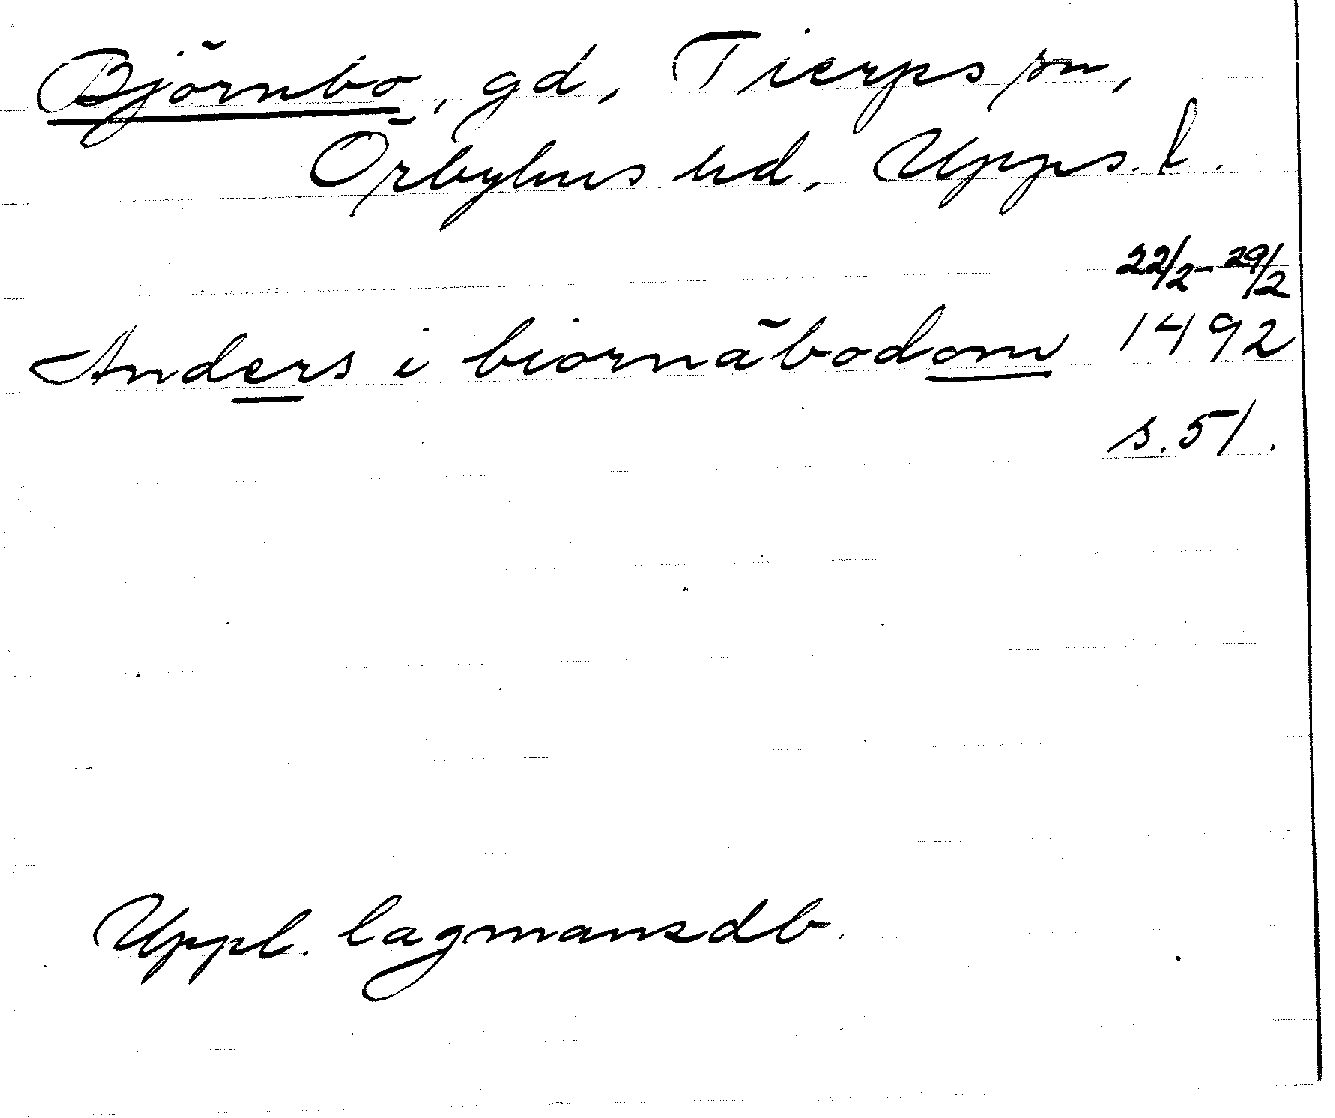 Björnbo, gd, Tierps sn,
Örbyhus hd, Upps. l.
22/2-29/2
Anders i biornäbodom 1492
s. 51.
Uppl. lagmansdb.